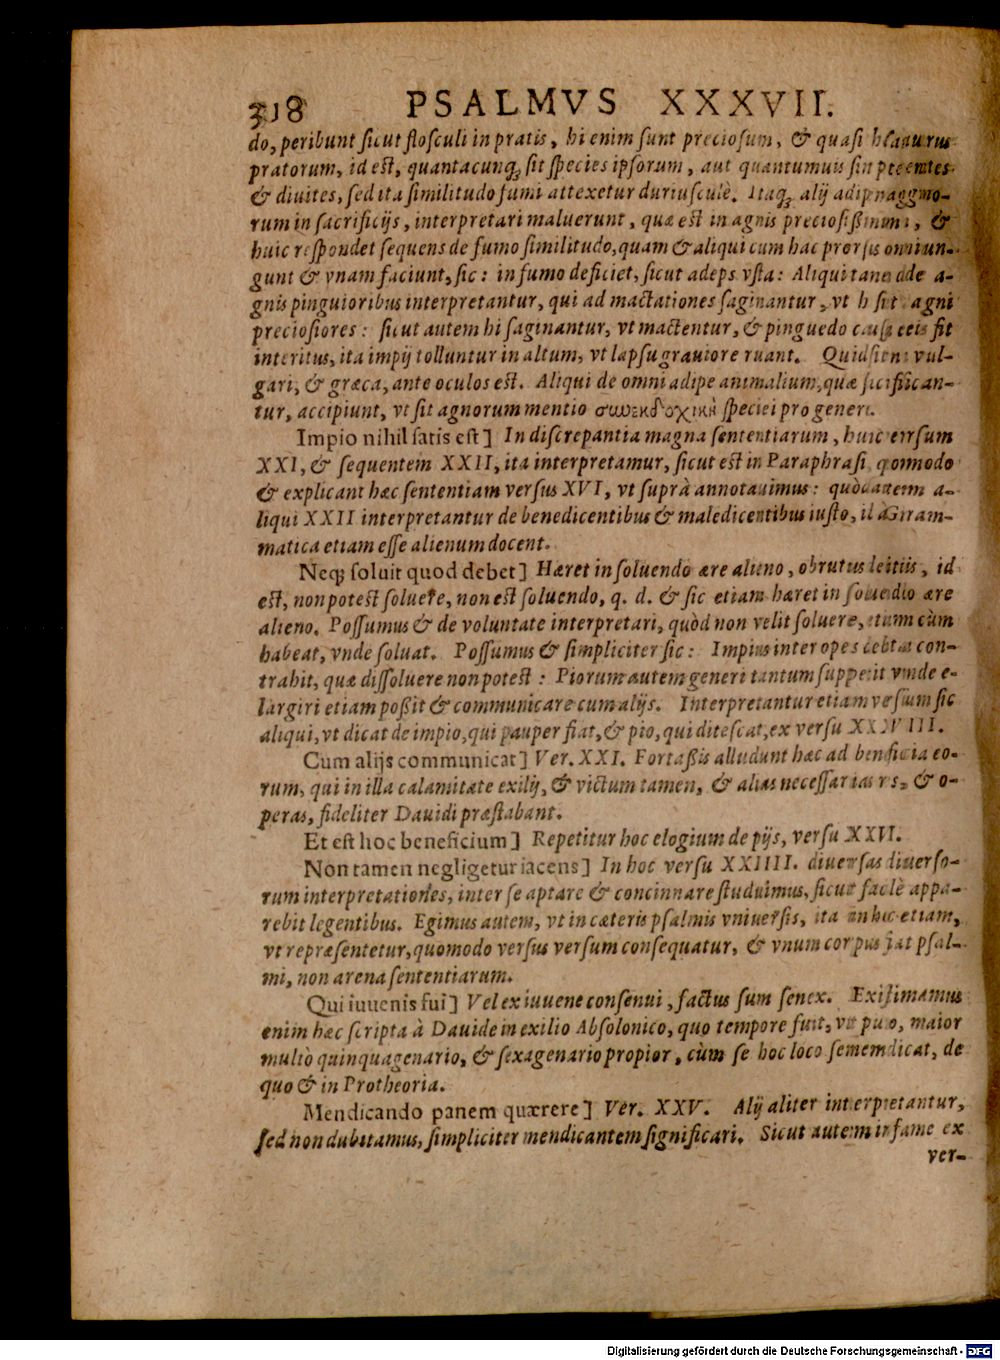 318 PSALMVS XXXVII.
do, peribunt sicut flosculi in pratis, hi enim sunt preciosum, & quasi
pratorum, id est, quantacunq; sit species ipsorum, aut quantumuis sint
& diuites, sed ita similitudo fumi attexetur duriusculè. Itaq; alij adip
rum in sacrificijs, interpretari maluerunt, quæ est in agnis preciosißimum, &
huic respondet sequens de fumo similitudo, quam & aliqui cum hac prorsus
gunt & vnam faciunt, sic: in fumo deficiet, sicut adeps vsta: Aliqui de a-
gnis pinguioribus interpretantur, qui ad mactationes saginantur, vt sit agni
preciosiores: sicut autem hi saginantur, vt mactentur, & pinguedo causa eis fit
interitus, ita impij tolluntur in altum, vt lapsu grauiore ruant. vul-
gari, & græca, ante oculos est. Aliqui de omni adipe animalium, quæ
tur, accipiunt, vt sit agnorum mentio συνεκδοχικὴ speciei pro genere.
Impio nihil satis est] In discrepantia magna sententiarum, hunc versum
XXI, & sequentem XXII, ita interpretamur, sicut est in Paraphrasi, quomodo
& explicant hæc sententiam versus XVI, vt suprà annotauimus: quòd autem a-
liqui XXII interpretantur de benedicentibus & maledicentibus iusto, Gram-
matica etiam esse alienum docent.
Neq; soluit quod debet] Hæret in soluendo ære alieno, obrutus id
est, non potest soluere, non est soluendo, q. d. & sic etiam hæret in ære
alieno. Possumus & de voluntate interpretari, quòd non velit soluere, cùm
habeat, vnde soluat. Possumus & simpliciter sic: Impius inter opes con-
trahit, quæ dissoluere non potest: Piorum autem generi tantum suppetit vnde e-
largiri etiam poßit & communicare cum alijs. Interpretantur etiam versum sic
aliqui, vt dicat de impio, qui pauper fiat, & pio, qui ditescat, ex versu
Cum alijs communicat] Ver. XXI. Fortaßis alludunt hæc ad beneficia eo-
rum, qui in illa calamitate exilij, & victum tamen, & alias necessarias res, & o-
peras, fideliter Dauidi præstabant.
Et est hoc beneficium] Repetitur hoc elogium de pijs, versu XXVI.
Non tamen negligetur iacens] In hoc versu XXIIII. diuersas diuerso-
rum interpretationes, inter se aptare & concinnare studuimus, sicut facilè appa-
rebit legentibus. Egimus autem, vt in cæteris psalmis vniuersis, ita in hoc etiam,
vt repræsentetur, quomodo versus versum consequatur, & vnum corpus fiat psal-
mi, non arena sententiarum.
Qui iuuenis fui] Vel ex iuuene consenui, factus sum senex. Existimamus
enim hæc scripta à Dauide in exilio Absolonico, quo tempore fuit, vt puto, maior
multò quinquagenario, & sexagenario propior, cùm se hoc loco senem dicat, de
quo & in Protheoria.
Mendicando panem quærere] Ver. XXV. Alij aliter interpretantur,
sed non dubitamus, simpliciter mendicantem significari. Sicut autem in fame ex
ver-
Digitalisierung gefördert durch die Deutsche Forschungsgemeinschaft - DFG